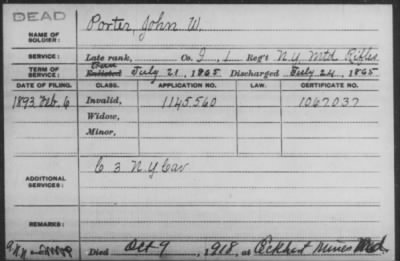 DEAD
NAME OF SOLDIER: Porter, John W.
SERVICE: Late rank, Co. I, 1 Reg't N.Y. Mtd Rifles
TERM OF SERVICE: Enlisted July 21, 1865 Discharged July 24, 1865
DATE OF FILING. CLASS. APPLICATION NO. LAW. CERTIFICATE NO.
1893 Feb. 6 Invalid, 1145560 1067037
Widow,
Minor,
ADDITIONAL SERVICES: C 3 N.Y. Cav
REMARKS:
Died Oct 9, 1918, at Eckhart Mines Md.